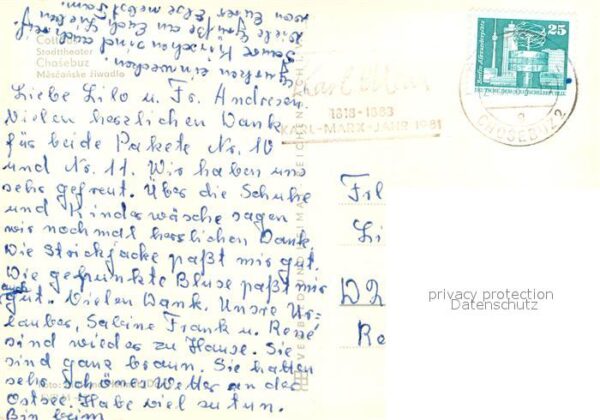 Cottbus
Stadttheater
Chóśebuz
Měsćańske źiwadło
Liebe Lilo u. Fr. Andresen
Vielen herzlichen Dank
für beide Pakete Nr. 10
und Nr. 11. Wir haben uns
sehr gefreut. Über die Schuhe
und Kinderwäsche sagen
wir nochmal herzlichen Dank.
Die Strickjacke paßt mir gut.
Die gepunkte Bluse paßt mir
auch
gut. Vielen Dank. Unsre Ur-
lauber, Sabine Frank u. René
sind wieder zu Hause. Sie
sind ganz braun. Sie hatten
sehr schönes Wetter an der
Ostsee. Habe viel zu tun.
Bin beim
Gurken einwecken
saure Kirschen sind auch
viele Grüße an Euch
von Eurer Else
Karl Marx
1818-1883
KARL-MARX-JAHR 1981
Berlin, Alexanderplatz
25
DDR
CHOSEBUZ 2
Frl
Li
D2
Re
privacy protection
Datenschutz